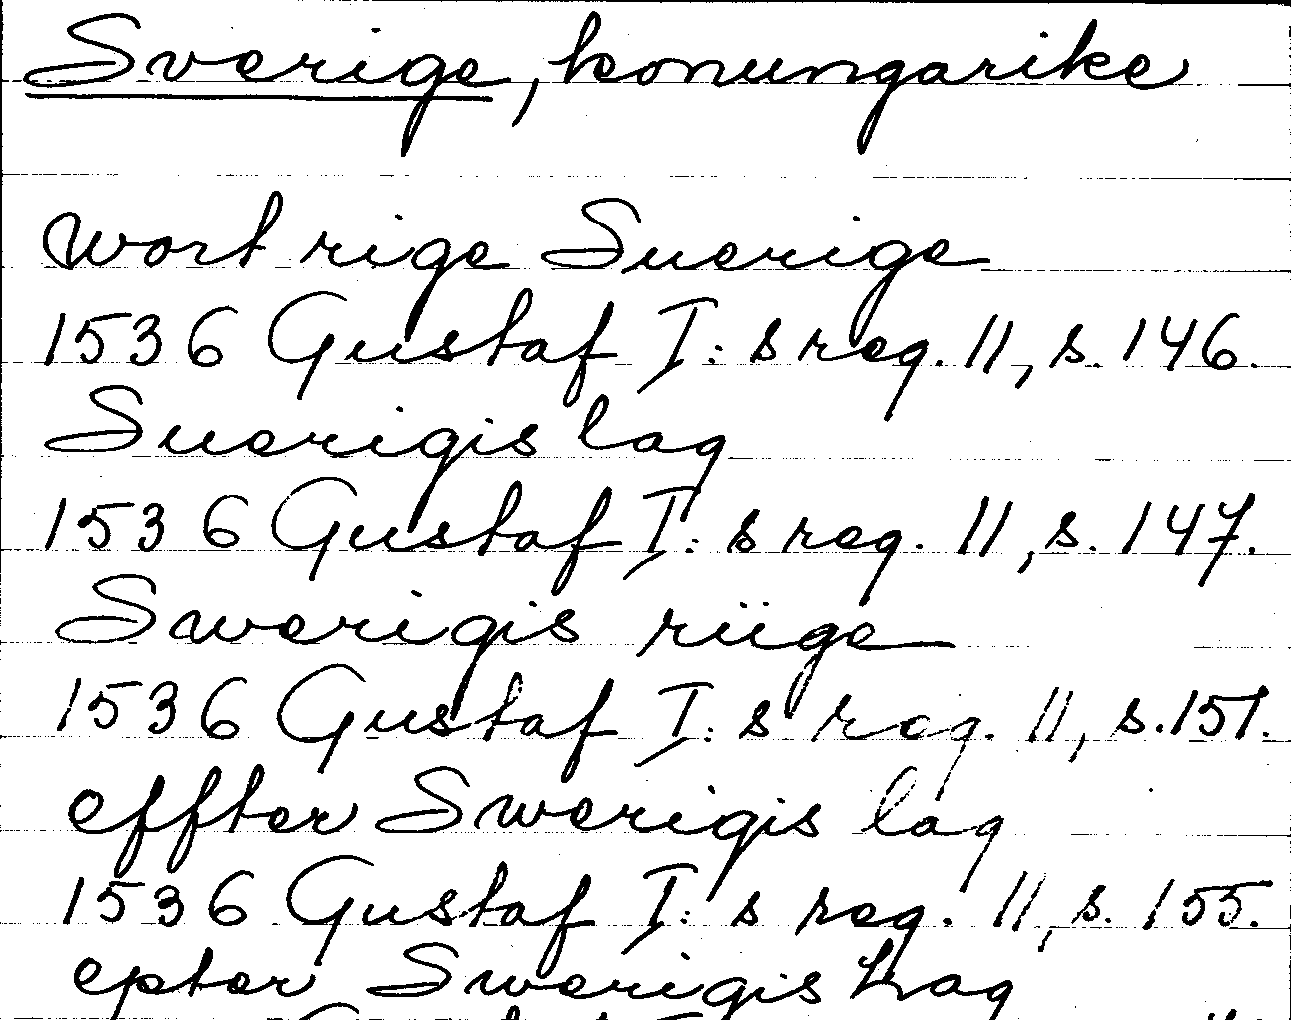 Sverige, konungarike
wort rige Suerige
1536 Gustaf I:s reg. 11, s. 146.
Suerigis lag
1536 Gustaf I:s reg. 11, s. 147.
Swerigis riige
1536 Gustaf I:s reg. 11, s. 151.
effter Swerigis lag
1536 Gustaf I:s reg. 11, s. 155.
epter Swerigis lag